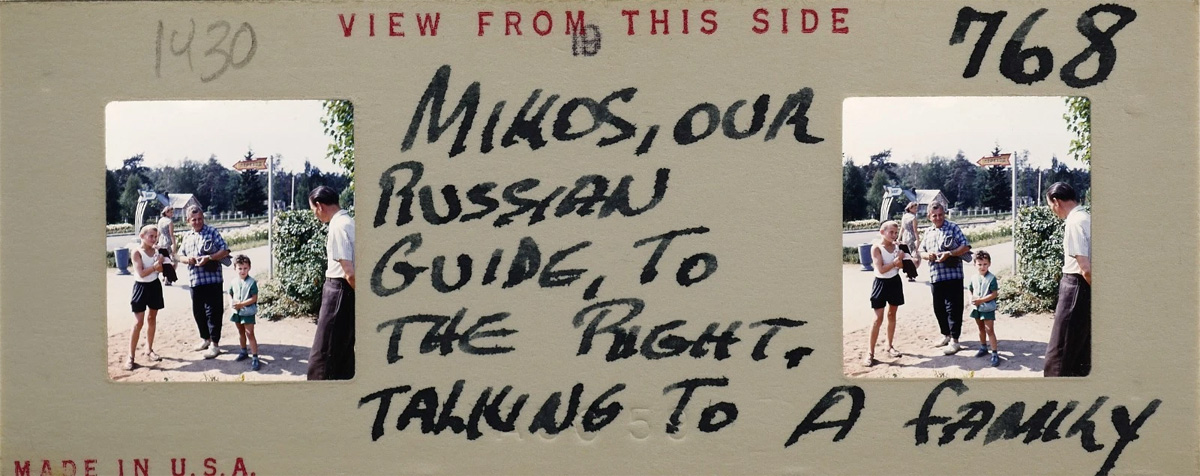 1430
VIEW FROM THIS SIDE
19
768
MIKOS, OUR
RUSSIAN
GUIDE, TO
THE RIGHT,
TALKING TO A FAMILY
MADE IN U.S.A.